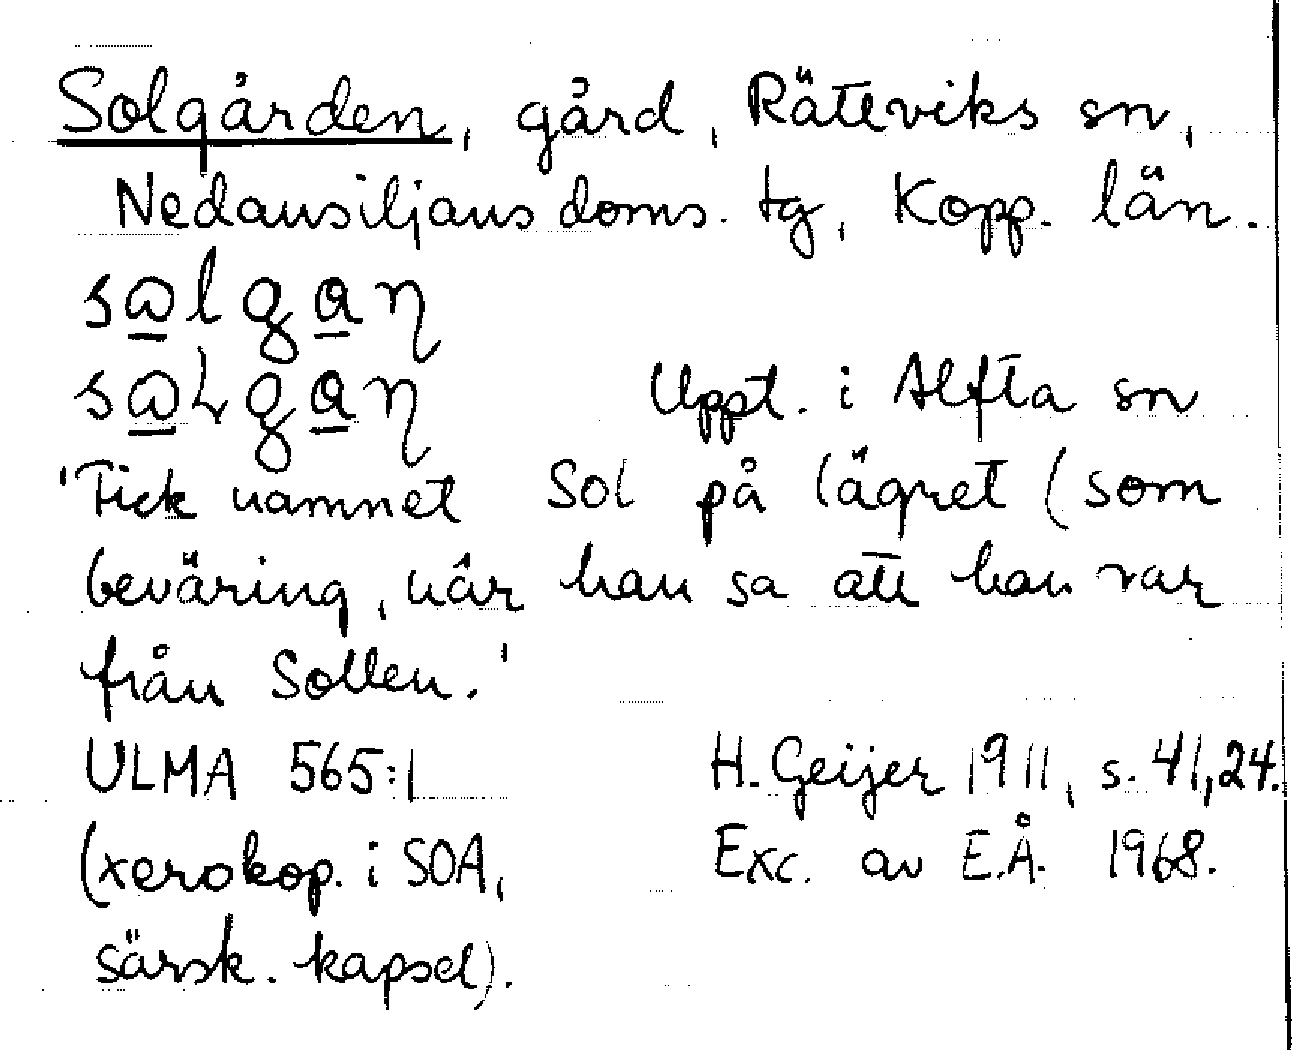 Solgården, gård, Rättviks sn,
Nedansiljans doms. tg, Kopp. län.
sωlgaŋ
sωLgaŋ Uppt. i Alfta sn
'Fick namnet Sol på lägret (som
beväring, när han sa att han var
från Sollen.'
ULMA 565:1 H. Geijer 1911, s. 41,24.
(xerokop. i SOA, Exc. av E.Å. 1968.
särsk. kapsel).